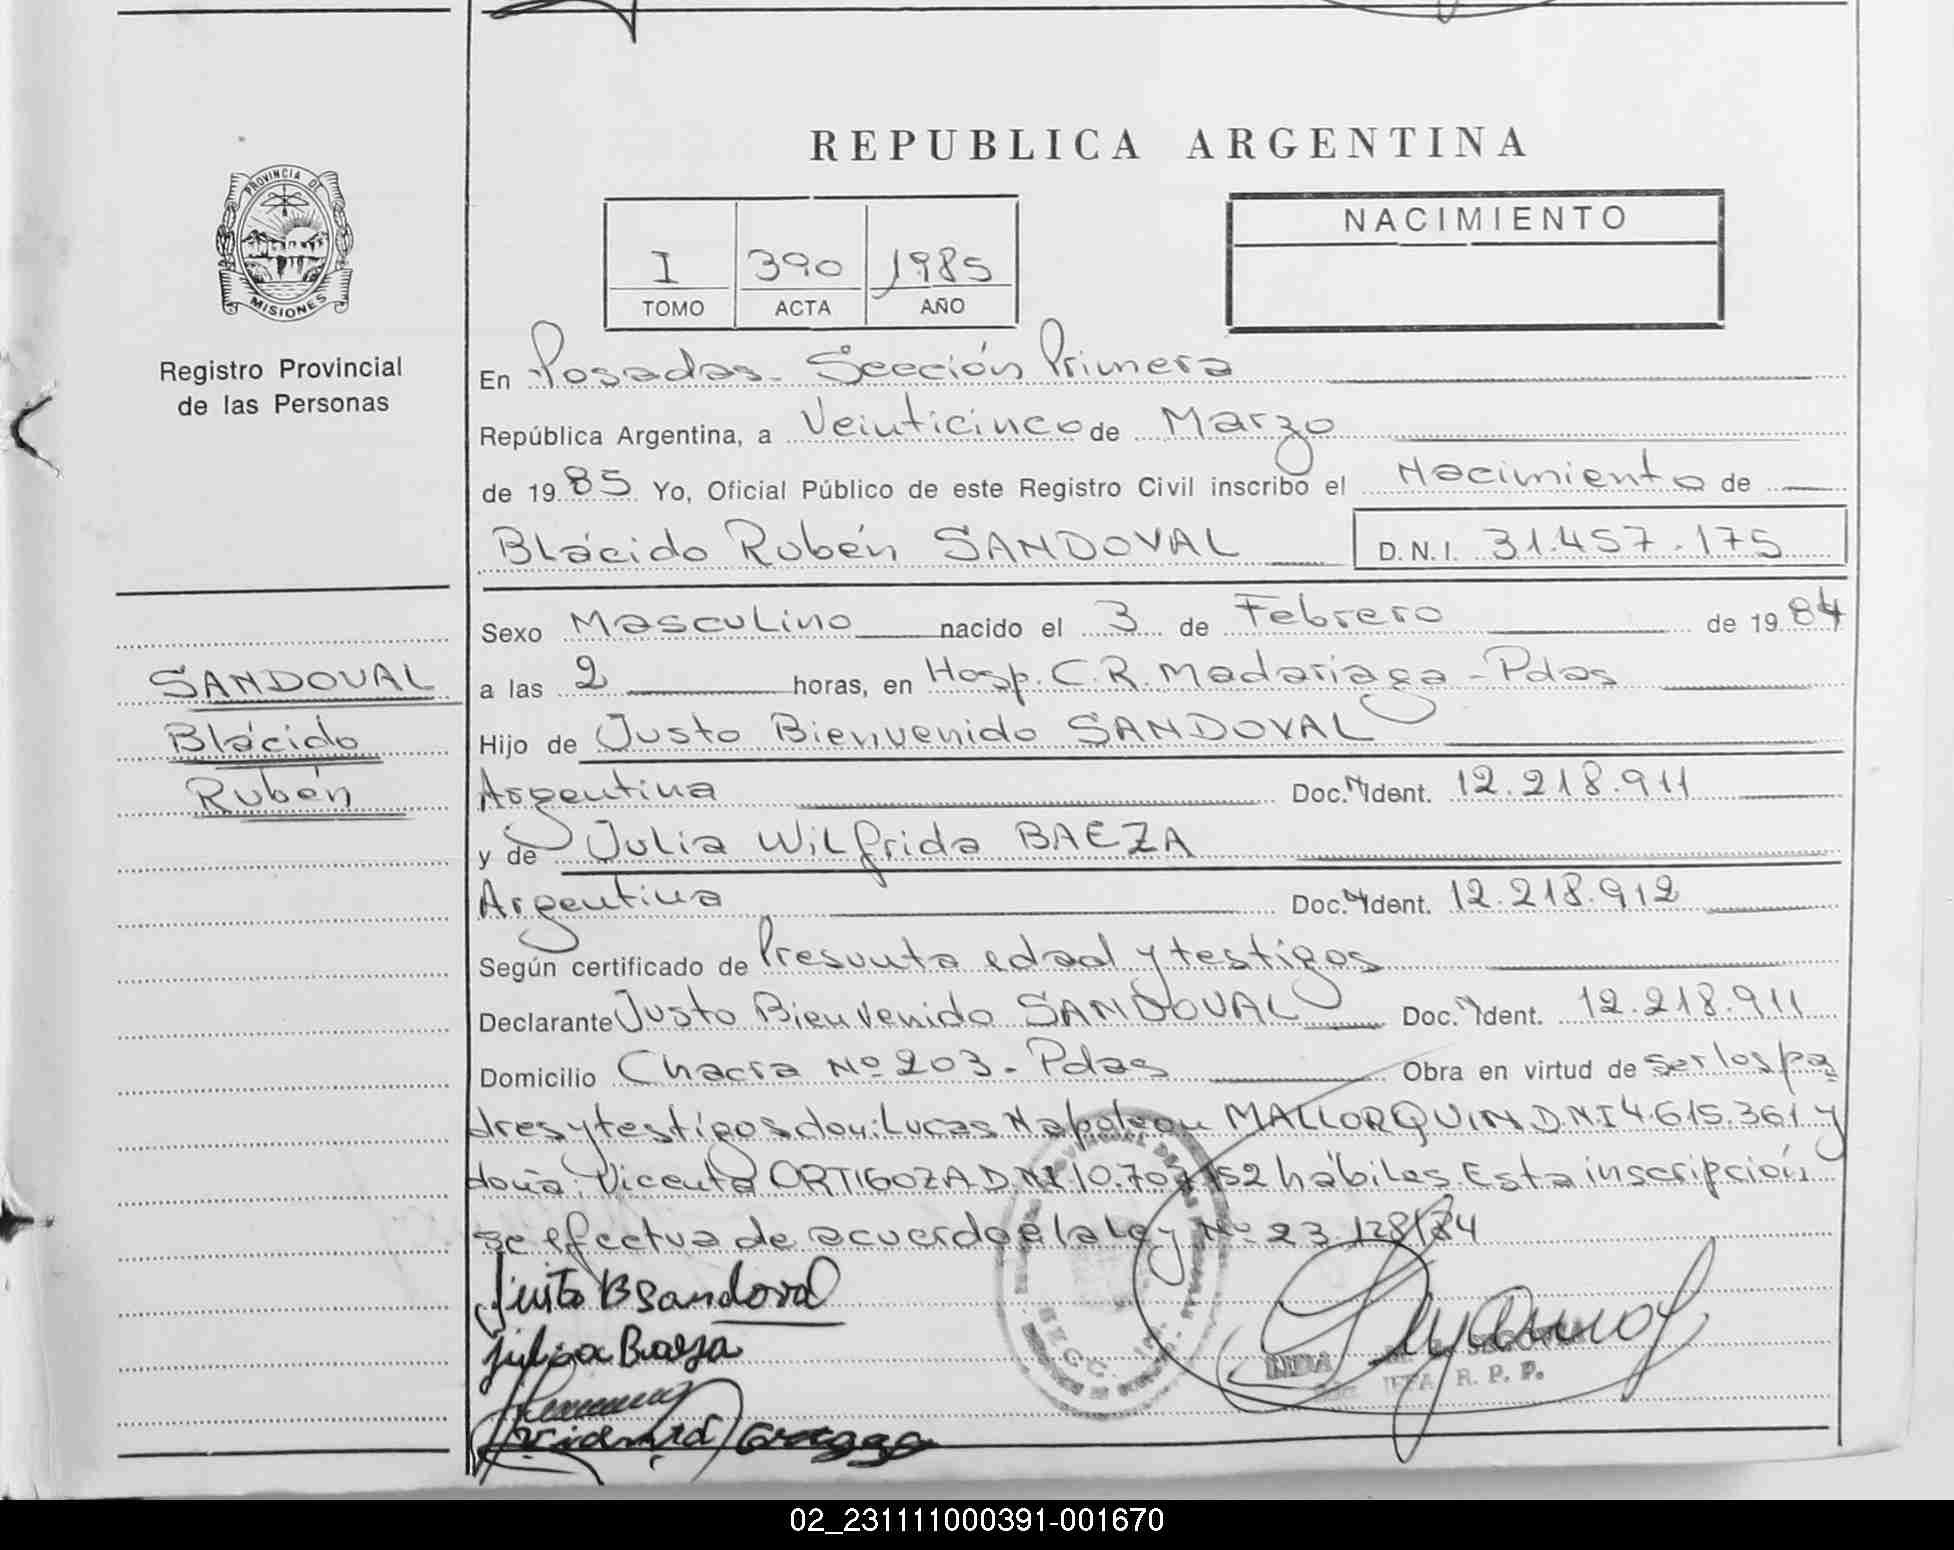 REPUBLICA ARGENTINA
PROVINCIA DE
MISIONES
Registro Provincial
de las Personas
I 390 1985
TOMO ACTA AÑO
NACIMIENTO
En Posadas. Sección Primera
República Argentina, a Veinticinco de Marzo
de 19 85 Yo, Oficial Público de este Registro Civil inscribo el Nacimiento de
Blácido Rubén SANDOVAL D.N.I. 31.457.175
Sexo Masculino nacido el 3 de Febrero de 19 84
SANDOVAL
Blácido
Rubén
a las 2 horas, en Hosp. C.R. Madariaga - Pdas
Hijo de Justo Bienvenido SANDOVAL
Argentina Doc. N Ident. 12.218.911
y de Julia Wilfrida BAEZA
Argentina Doc. N Ident. 12.218.912
Según certificado de Presunta edad y testigos
Declarante Justo Bienvenido SANDOVAL Doc. N Ident. 12.218.911
Domicilio Chacra Nº 203 - Pdas Obra en virtud de ser los pa
dres y testigos don: Lucas Napoleon MALLORQUIN D.N.I 4.615.361 y
doña. Vicenta ORTIGOZA D.N.I 10.707 152 hábiles. Esta inscripción
se efectua de acuerdo a la Ley Nº 23 128/84
Justo B Sandoval
Julia Baeza
R. P. P.
02_231111000391-001670